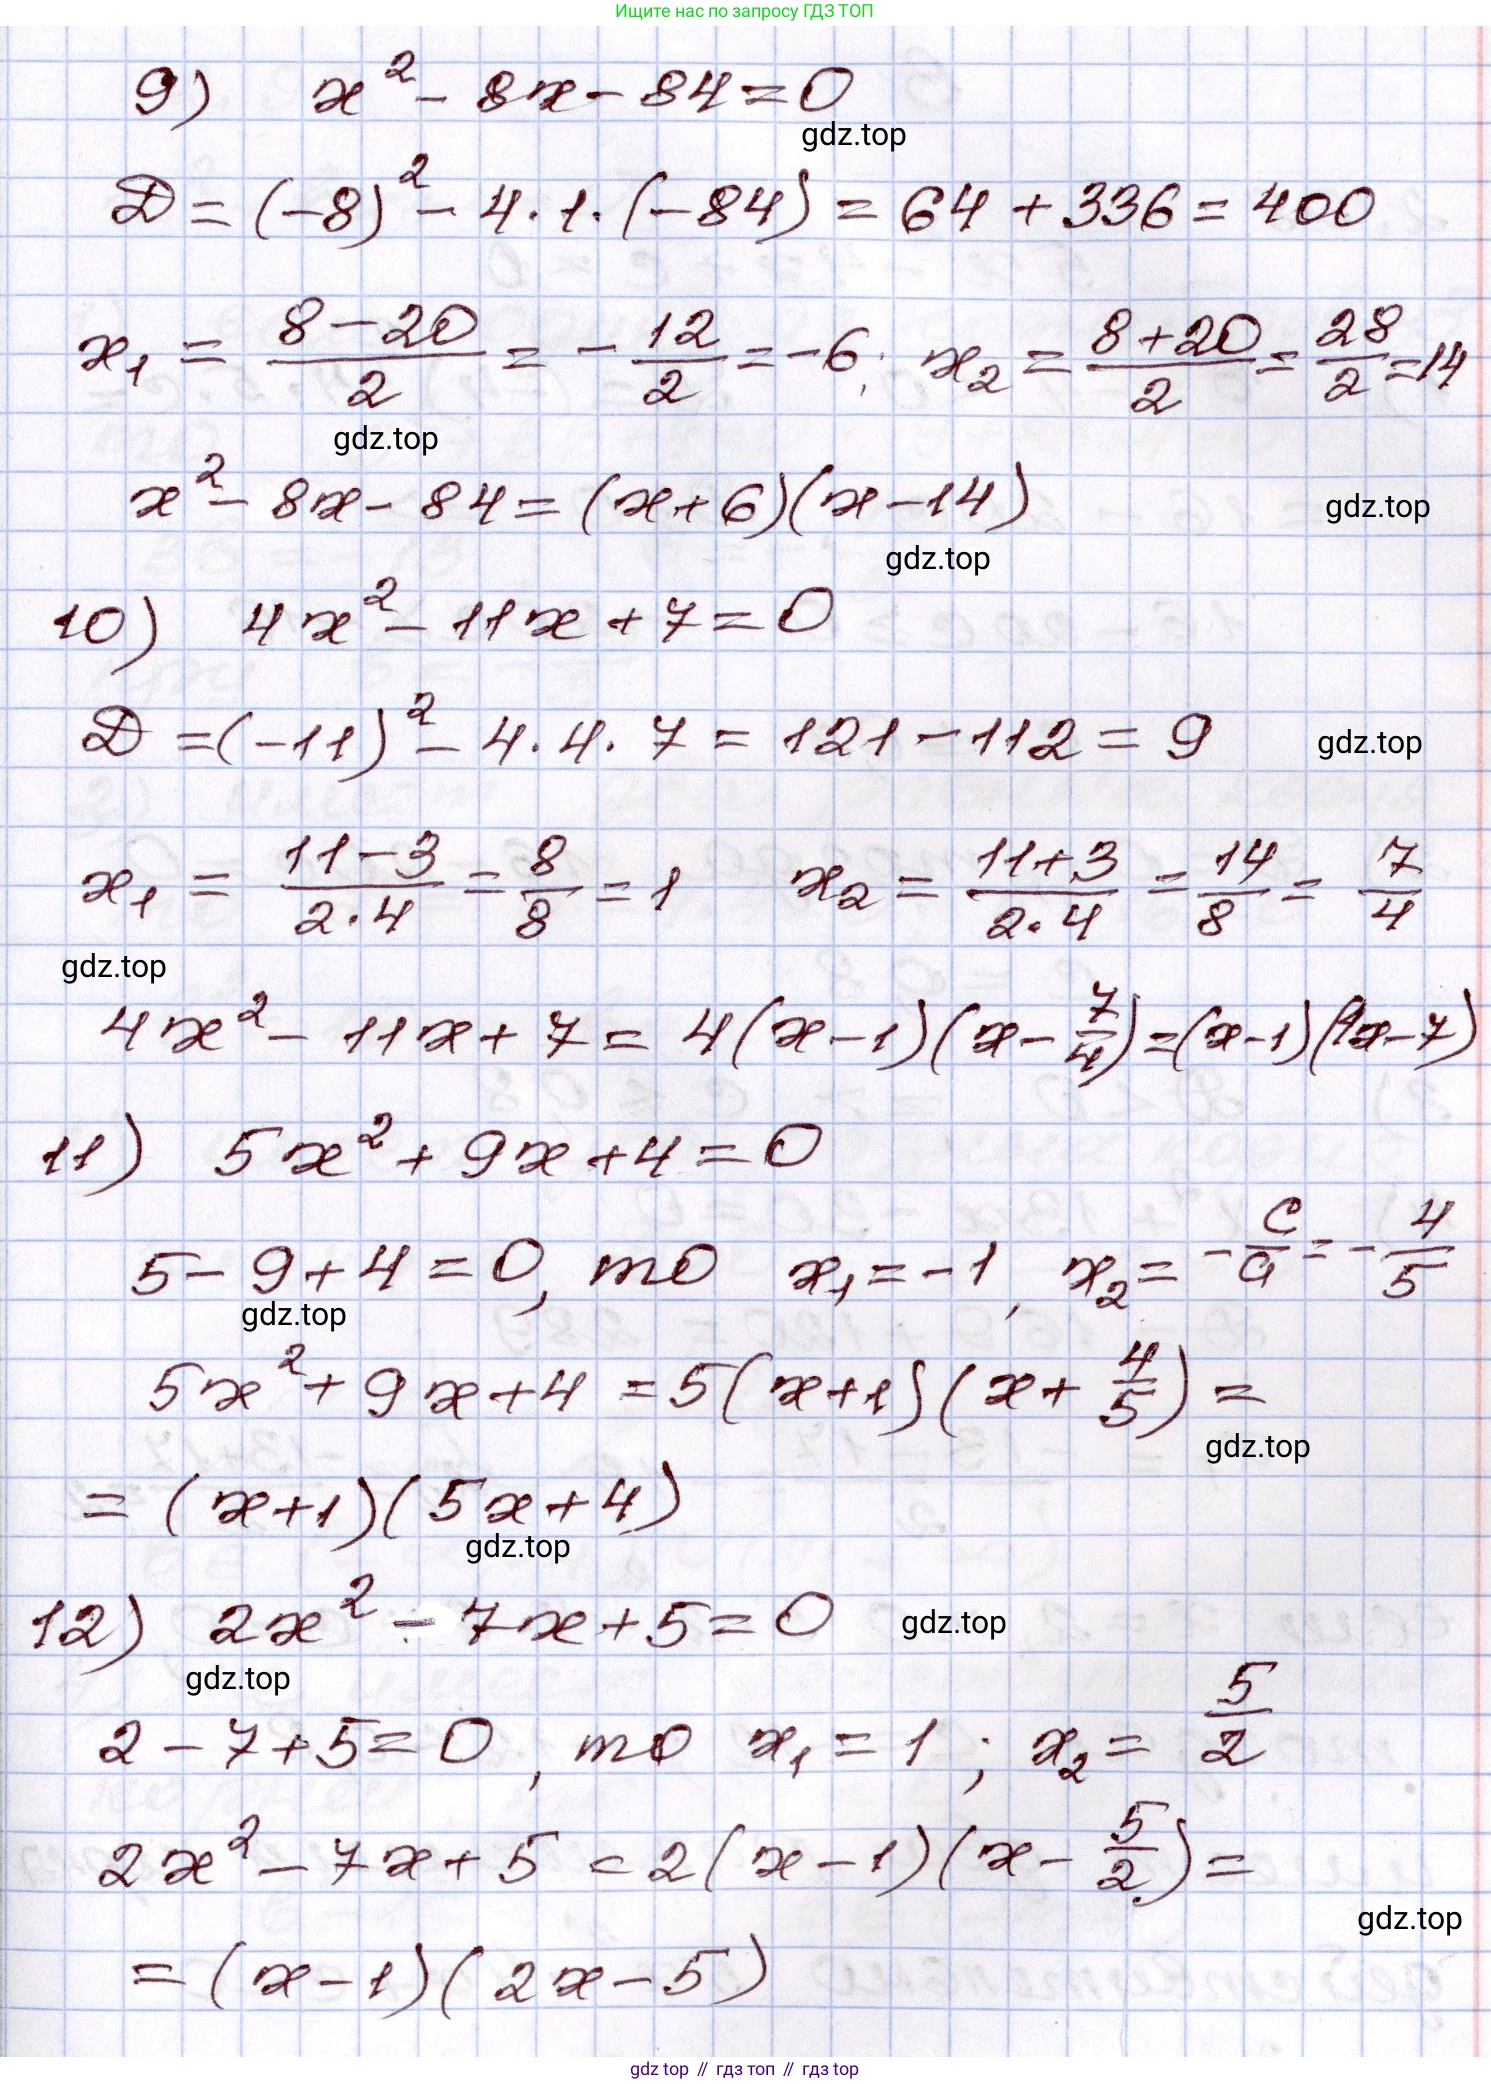 Ищите нас по запросу ГДЗ ТОП
9) x² - 8x - 84 = 0
gdz.top
D = (-8)² - 4·1·(-84) = 64 + 336 = 400
x₁ = (8-20)/2 = -12/2 = -6; x₂ = (8+20)/2 = 28/2 = 14
gdz.top
x² - 8x - 84 = (x+6)(x-14)
gdz.top
gdz.top
10) 4x² - 11x + 7 = 0
D = (-11)² - 4·4·7 = 121 - 112 = 9
gdz.top
x₁ = (11-3)/(2·4) = 8/8 = 1 x₂ = (11+3)/(2·4) = 14/8 = 7/4
gdz.top
4x² - 11x + 7 = 4(x-1)(x - 7/4) = (x-1)(4x-7)
11) 5x² + 9x + 4 = 0
5 - 9 + 4 = 0, то x₁ = -1, x₂ = -c/a = -4/5
gdz.top
5x² + 9x + 4 = 5(x+1)(x + 4/5) =
gdz.top
= (x+1)(5x+4)
gdz.top
12) 2x² - 7x + 5 = 0
gdz.top
gdz.top
2 - 7 + 5 = 0, то x₁ = 1; x₂ = 5/2
2x² - 7x + 5 = 2(x-1)(x - 5/2) =
gdz.top
= (x-1)(2x-5)
gdz top // гдз топ // гдз top